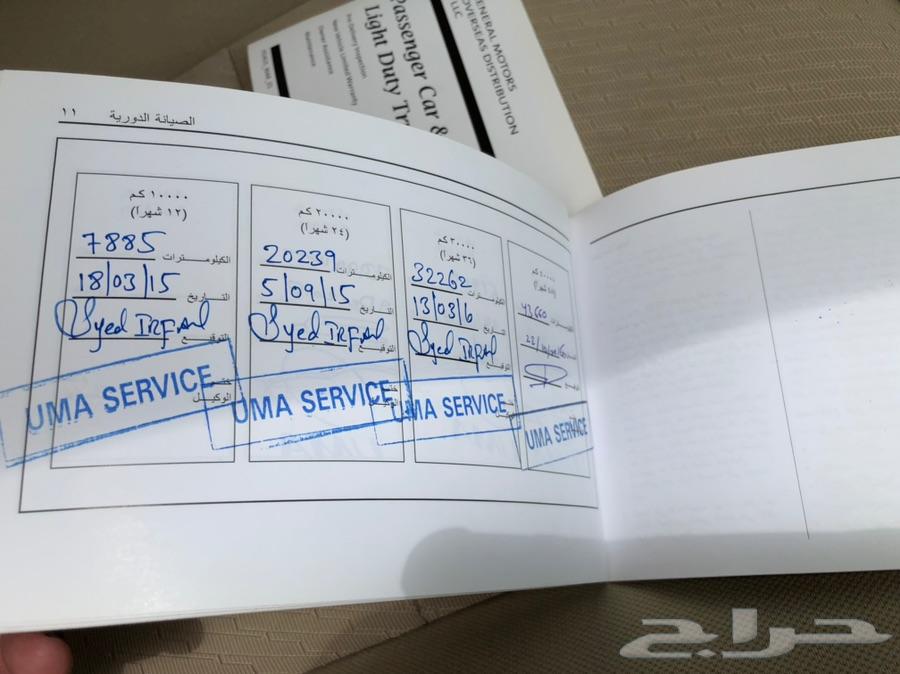 GENERAL MOTORS
OVERSEAS DISTRIBUTION
LLC
Passenger Car &
Light Duty Tr
Pre-Delivery Inspection
New Vehicle Limited Warranty
Owner Assistance
Maintenance
الصيانة الدورية ١١
١٠٠٠٠ كم
(١٢ شهرا)
الكيلومترات 7885
التاريخ 18/03/15
التوقيع Syed IRFAN
ختم
الوكيل
UMA SERVICE
٢٠٠٠٠ كم
(٢٤ شهرا)
الكيلومترات 20239
التاريخ 5/09/15
التوقيع Syed IRFAN
UMA SERVICE
٣٠٠٠٠ كم
(٣٦ شهرا)
الكيلومترات 32262
التاريخ 13/03/6
التوقيع Syed IRFAN
UMA SERVICE
٤٠٠٠٠ كم
43660
UMA SERVICE
حراج